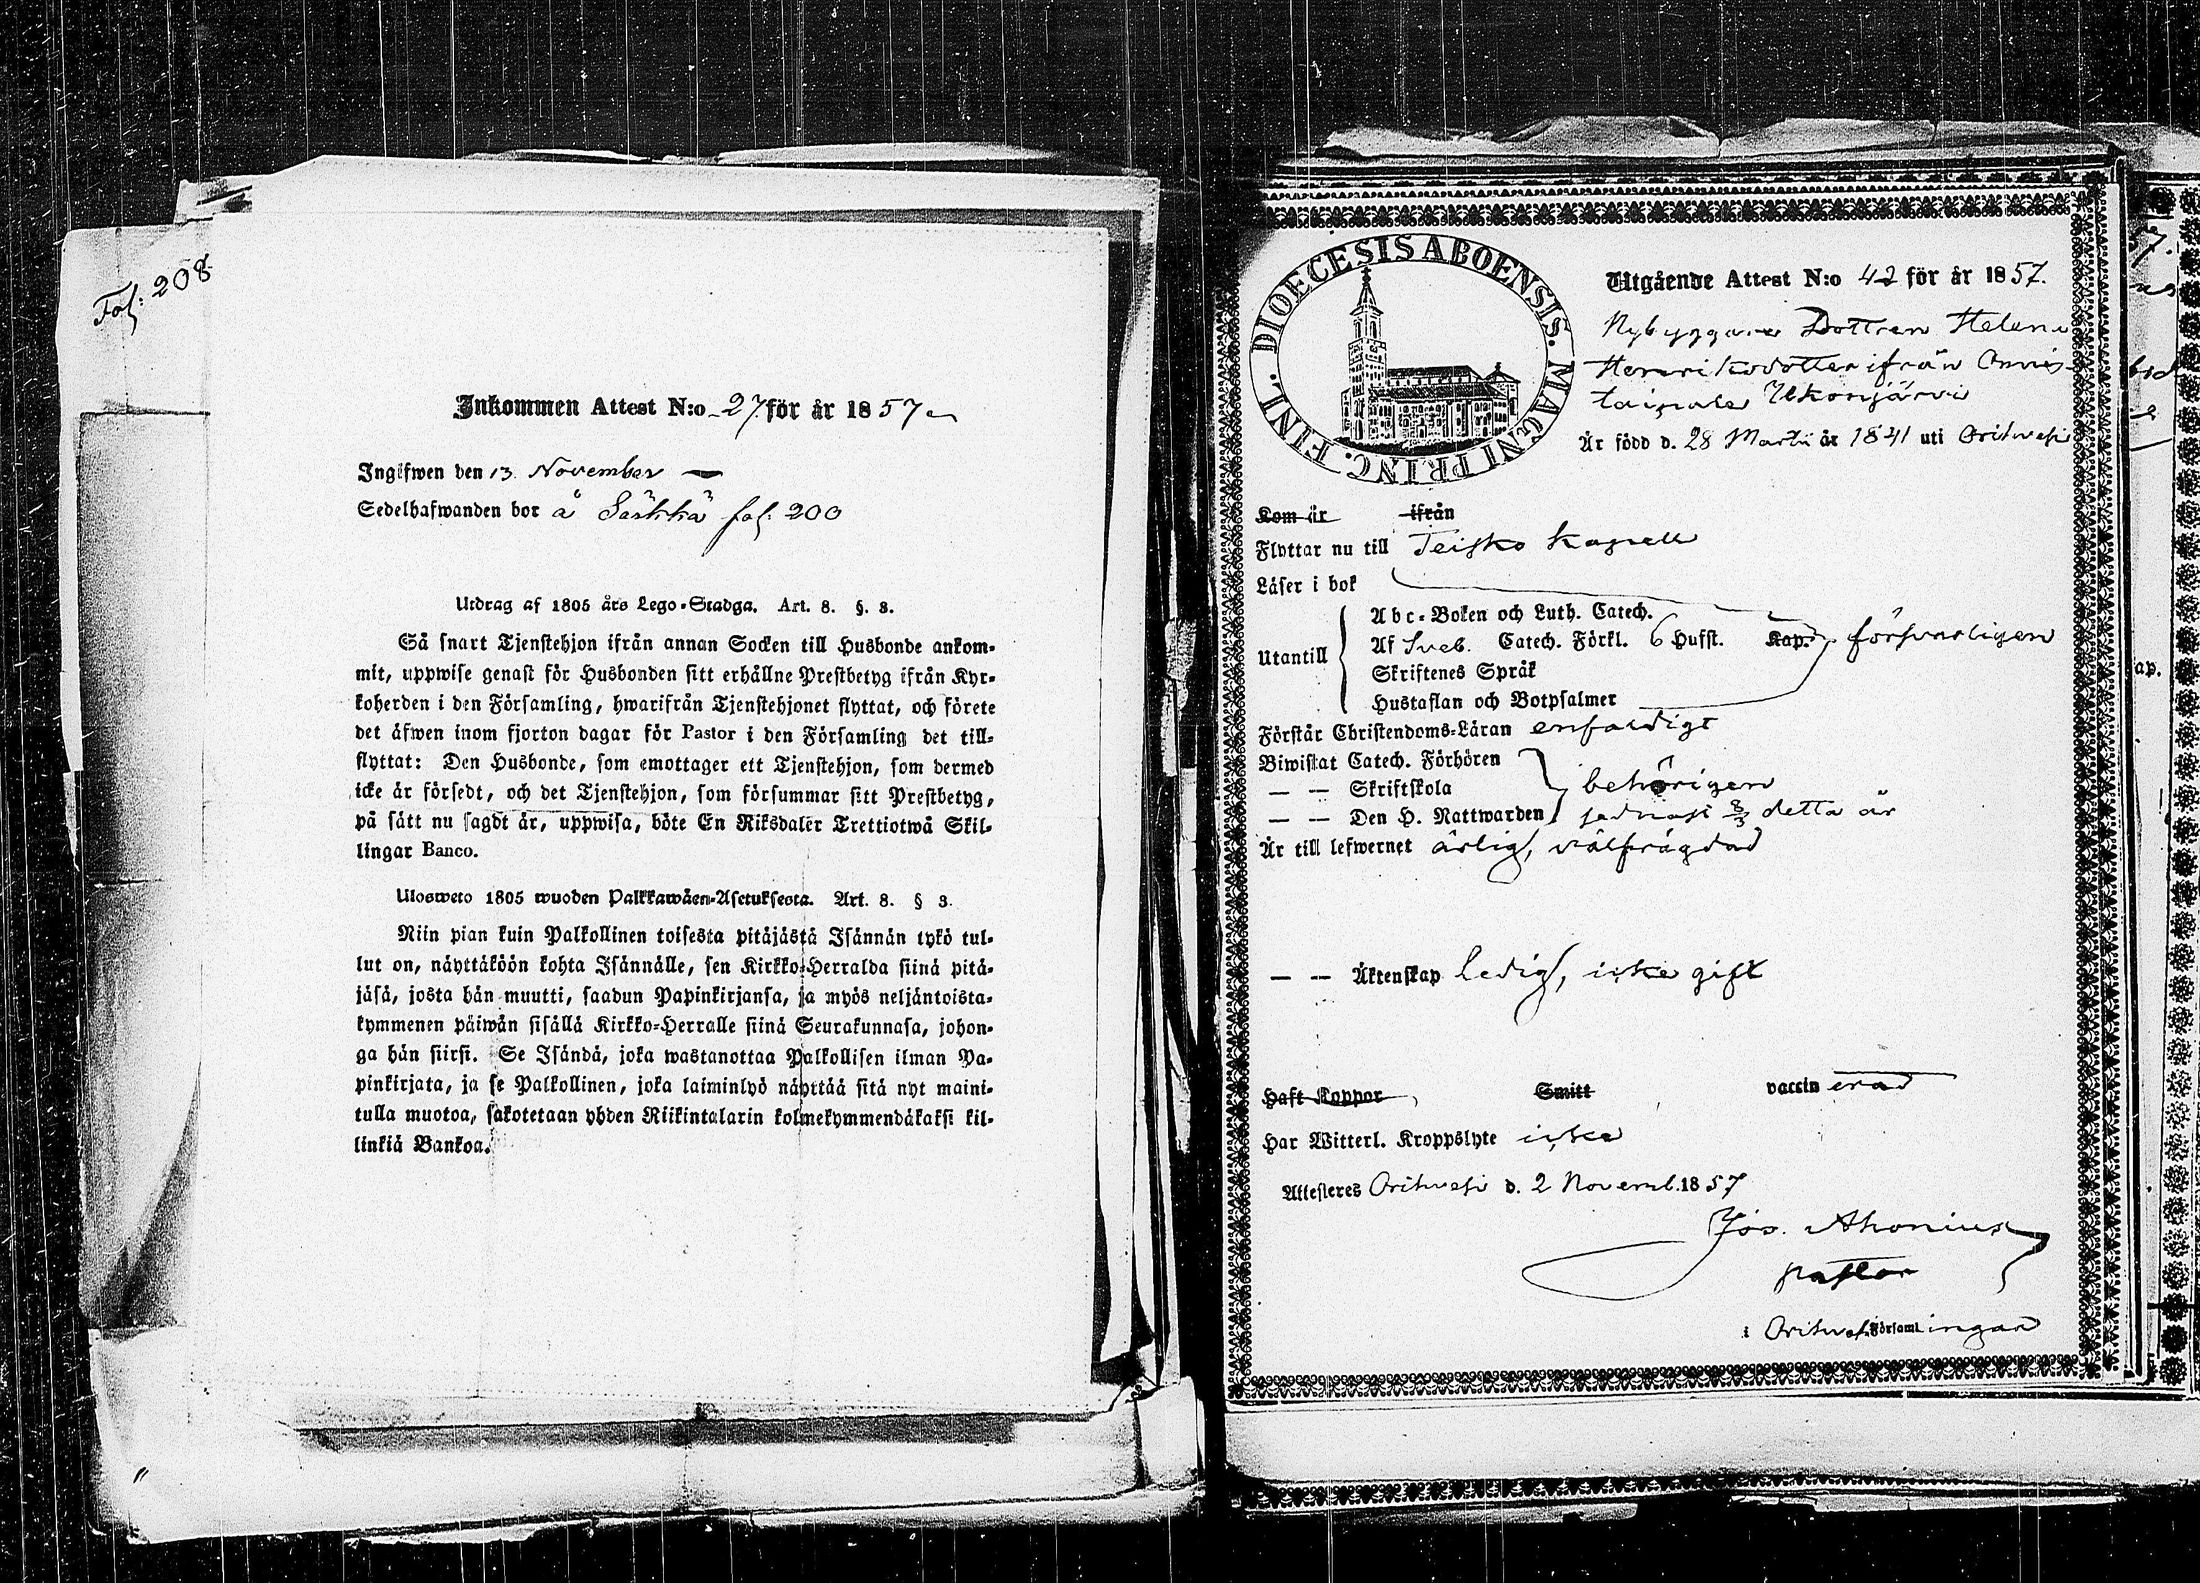 Fol: 208
Inkommen Attest N:o 27 för år 1857
Ingifwen den 13 November
Sedelhafwanden bor å Särkkä fol. 200
Utdrag af 1805 års Lego-Stadga. Art. 8. §. 3.
Så snart Tjenstehjon ifrån annan Socken till Husbonde ankom-
mit, uppwise genast för Husbonden sitt erhållne Prestbetyg ifrån Kyr-
koherden i den Församling, hwarifrån Tjenstehjonet flyttat, och förete
det äfwen inom fjorton dagar för Pastor i den Församling det till-
flyttat: Den Husbonde, som emottager ett Tjenstehjon, som dermed
icke är försedt, och det Tjenstehjon, som försummar sitt Prestbetyg,
på sätt nu sagdt är, uppwisa, böte En Riksdaler Trettiotwå Skil-
lingar Banco.
Ulosweto 1805 wuoden Palkkawäen-Asetuksesta. Art. 8. § 3.
Niin pian kuin Palkollinen toisesta pitäjästä Isännän tykö tul-
lut on, näyttäköön kohta Isännälle, sen Kirkko-Herralda siinä pitä-
jäsä, josta hän muutti, saadun Papinkirjansa, ja myös neljäntoista-
kymmenen päiwän sisällä Kirkko-Herralle siinä Seurakunnasa, johon-
ga hän siirsi. Se Isändä, joka wastanottaa Palkollisen ilman Pa-
pinkirjata, ja se Palkollinen, joka laiminlyö näyttää sitä nyt maini-
tulla muotoa, sakotetaan yhden Riikintalarin kolmekymmendäkaksi kil-
linkiä Bankoa.
DIOECESIS ABOENSIS. MAGNI PRINC. FINL.
Utgående Attest N:o 42 för år 1857.
Nybyggare Dottren Helena
Henriksdotter ifrån Onnis-
taipale Ukonjärvi
Är född d. 28 Martii år 1841 uti Orihvesi
Kom år ifrån
Flyttar nu till Teisko Kapell
Läser i bok
Abc-Boken och Luth. Catech.
Utantill Af Sveb. Catech. Förkl. 6 Hufst. Kap. försvarligen
Skriftenes Språk
Hustaflan och Botpsalmer
Förstår Christendoms-Läran enfaldigt
Biwistat Catech. Förhören
— — Skriftskola behörigen
— — Den H. Nattwarden sednast 8/3 detta år
Är till lefwernet ärlig, välfrägdad
— — Äktenskap Ledig, icke gift
Haft Koppor Smitt vaccinerad
Har Witterl. Kroppslyte icke
Attesteres Orihvesi d. 2 Novemb. 1857
Jos. Ahonius
pastor
i Orihvesi Församlingar
ap.